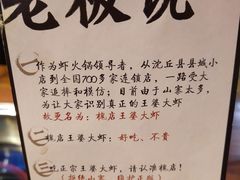 老板说
一
作为虾火锅领导者，从沈丘县县城小
店到全国700多家连锁店，一路受大
家追捧和模仿；目前由于山寨太多，
为让大家识别真正的王婆大虾
故更名为：椒店王婆大虾
二
椒店王婆大虾：好吃、不贵
三
吃正宗王婆大虾，请认准椒店！